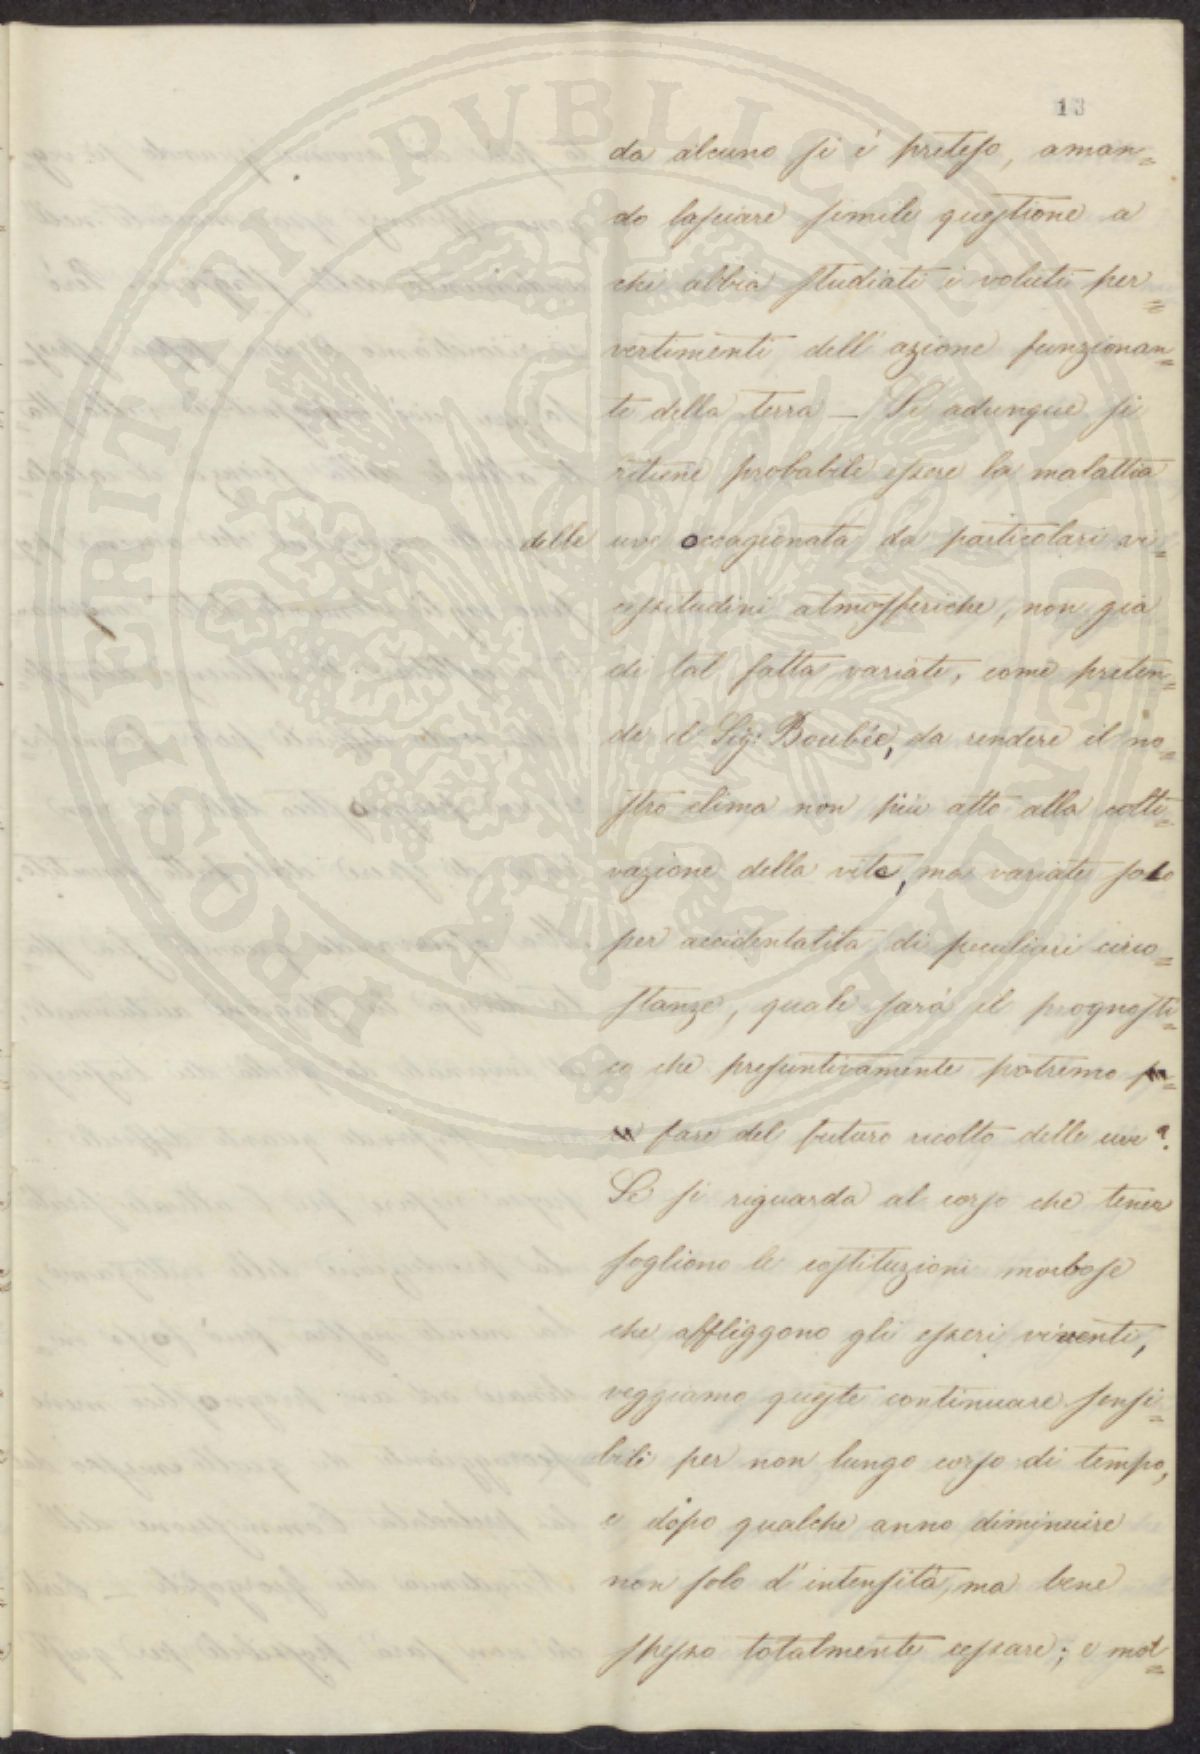 13
da alcuno si è preteso, aman=
do lasciare simile questione a
chi abbia studiati i voluti per=
vertimenti dell'azione funzionan=
te della terra — Se adunque si
ritiene probabile essere la malattia
delle uve occagionata da particolari vi=
cissitudini atmosferiche, non già
di tal fatta variate, come preten=
de il Sig: Boubée, da rendere il no=
stro clima non più atto alla colti=
vazione della vite, ma variate solo
per accidentalità di peculiari circo=
stanze, quale sarà il prognosti=
co che presuntivamente potremo
fare del futuro ricolto delle uve?
Se si riguarda al corso che tener
sogliono le costituzioni morbose
che affliggono gli esseri viventi,
veggiamo queste continuare sensi=
bili per non lungo corso di tempo,
e dopo qualche anno diminuire
non solo d'intensità, ma bene
spesso totalmente cessare; e mol=
PROSPERITATI PUBLICAE AUGENDAE